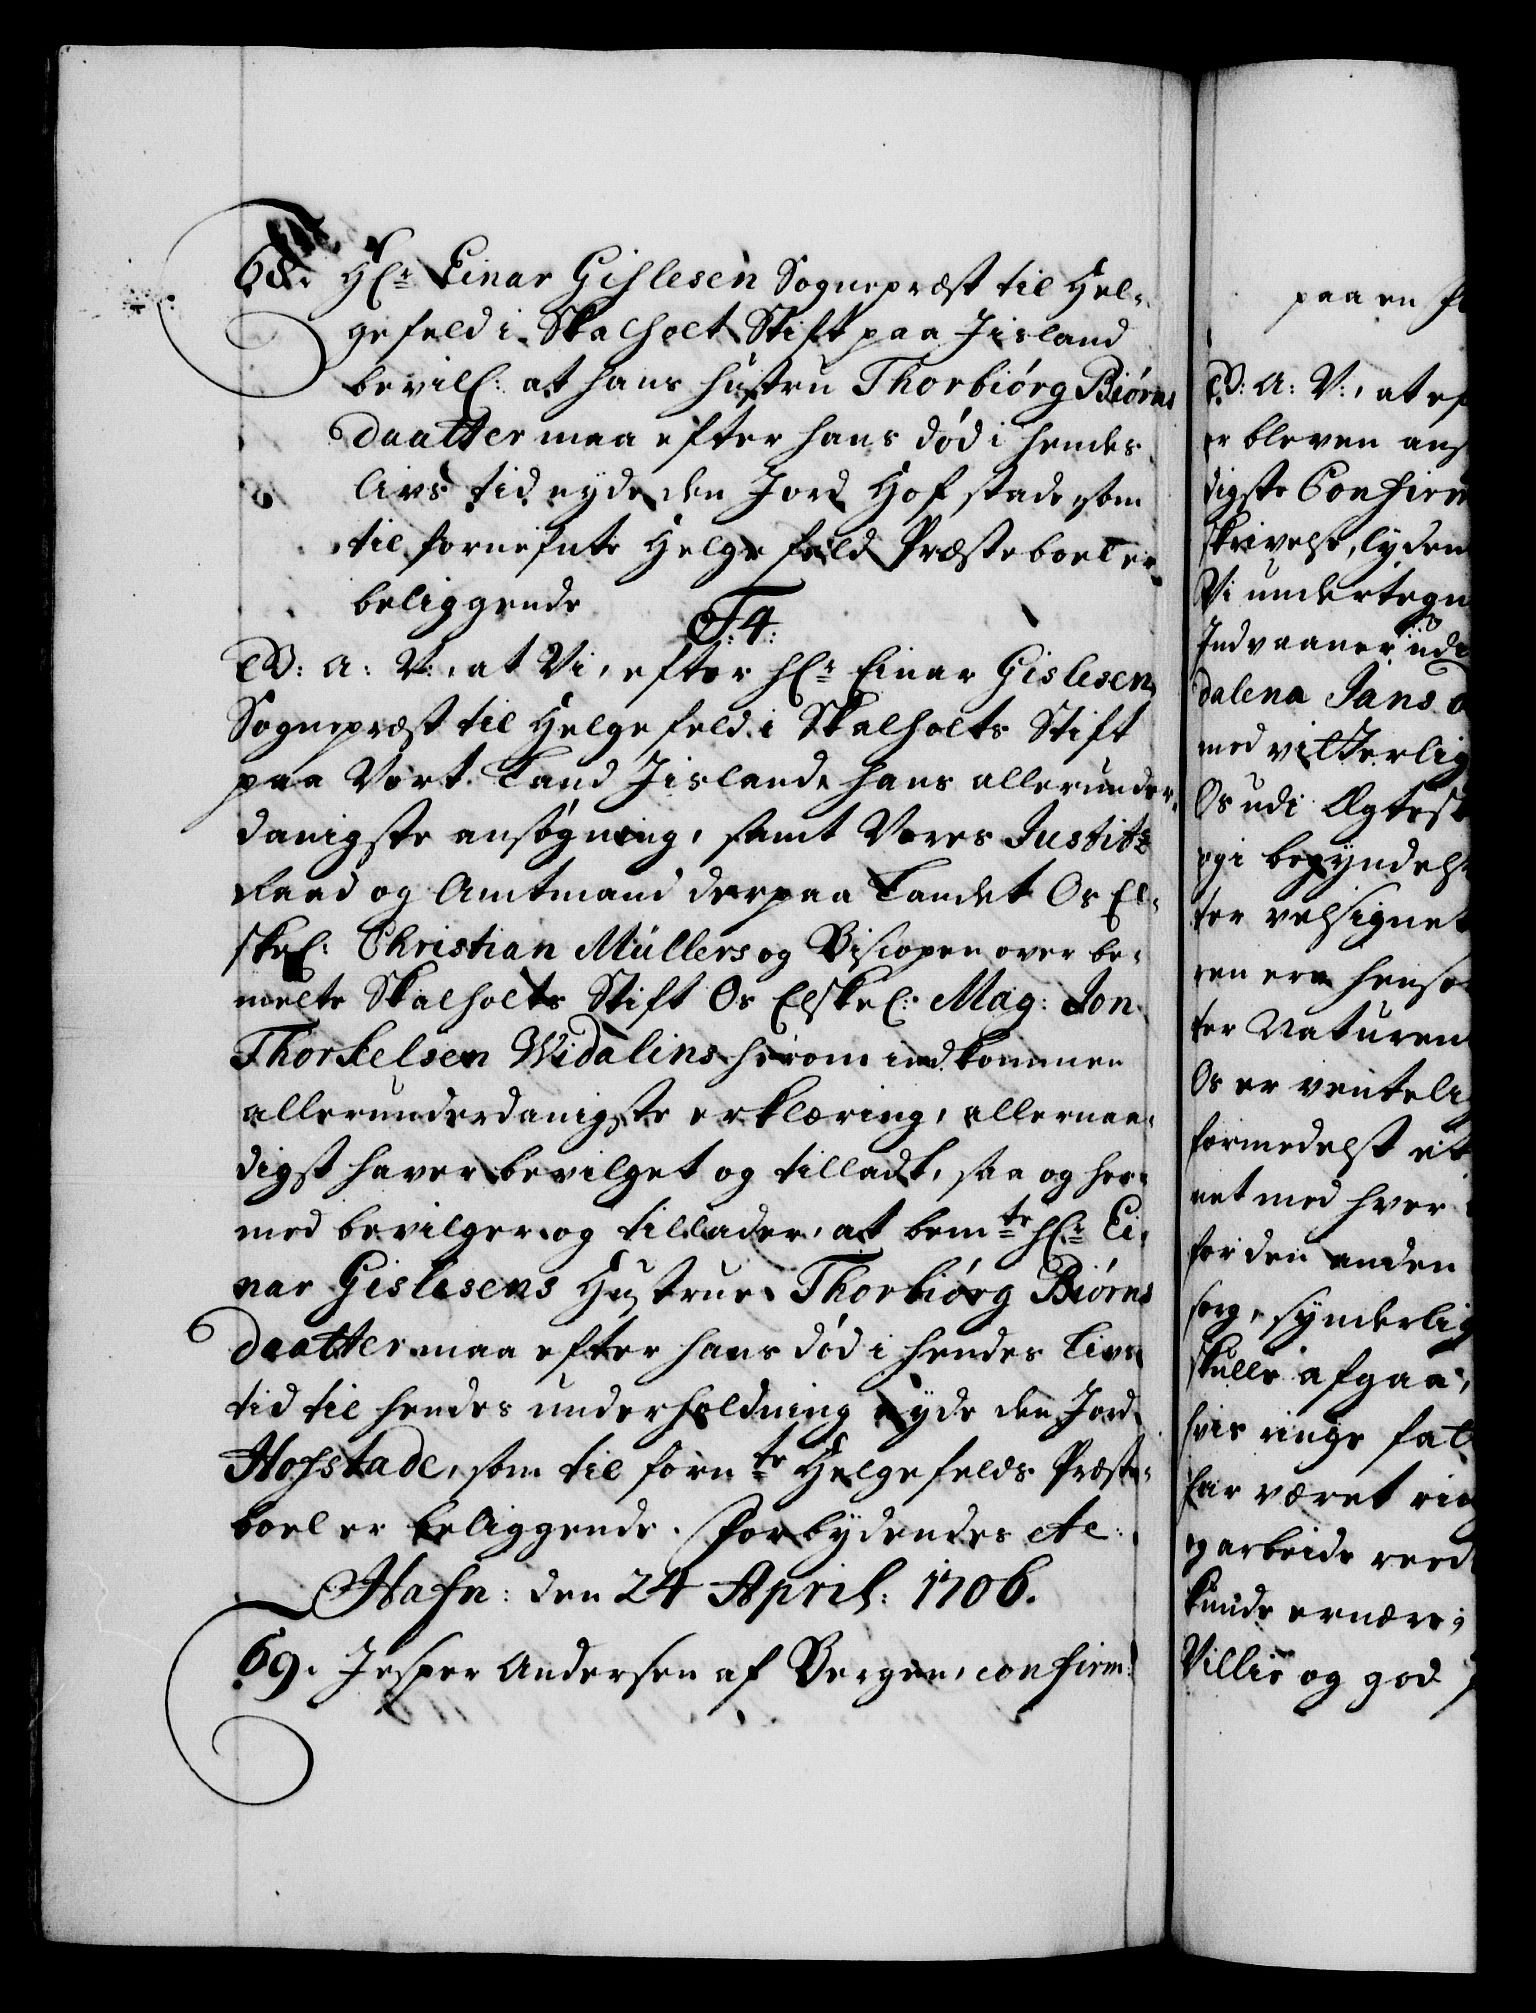 68. Hr Einar Gislesen Sognepræst til Hel-
gefeld i Skalholt Stift paa Jisland
bevil: at hans hustru Thorbiørg Biørns
Daatter maa efter hans død i hendes
livs tid nyde den Jord Hofstade som
til fornefnte Helgefeld Præsteboel er
beliggende
F: 4:
G: A: V:, at Vi, efter Hr Einar Gislesen,
Sognepræst til Helgefeld i Skalholts Stift
paa Vort Land Jisland, hans allerunder-
danigste ansøgning, samt Vores Justitz
Raad og Amtmand derpaa Landet Os El-
skel: Christian Müllers og Biscopen over be-
melte Skalholts Stift Os Elskel: Mag: Jon
Thorkelsen Widalins herom indkommen
allerunderdanigste erklæring, allernaa-
digst haver bevilget og tilladt, saa og her-
med bevilger og tillader, at bemte Hr Ei-
nar Gislesens Hustrue Thorbiørg Biørns
daatter maa efter hans død i hendes Livs
tid til hendes underholdning nyde den Jord
Hofstade, som til fornte Helgefelds Præste-
boel er beliggende. Forbydendes etc:
Hafn: den 24 April: 1706.
69. Jesper Andersen af Bergen, confirm:
paa en
G: A: V:, at ef
er bleven
digste Confirm
skrivelse, lyden
Vi undertegn
Indvaaner udi
dalena Jans
med vitterlig
Os udi Ægtesk
ogi begyndels
ter velsignet
ren ere
ter Naturen
Os er venteli
formedelst et
ret med hver
for den anden
sorg, synderlig
skulle afgaa,
hvis ringe fat
har været
og arbeide
kunde ernære;
Villie og god